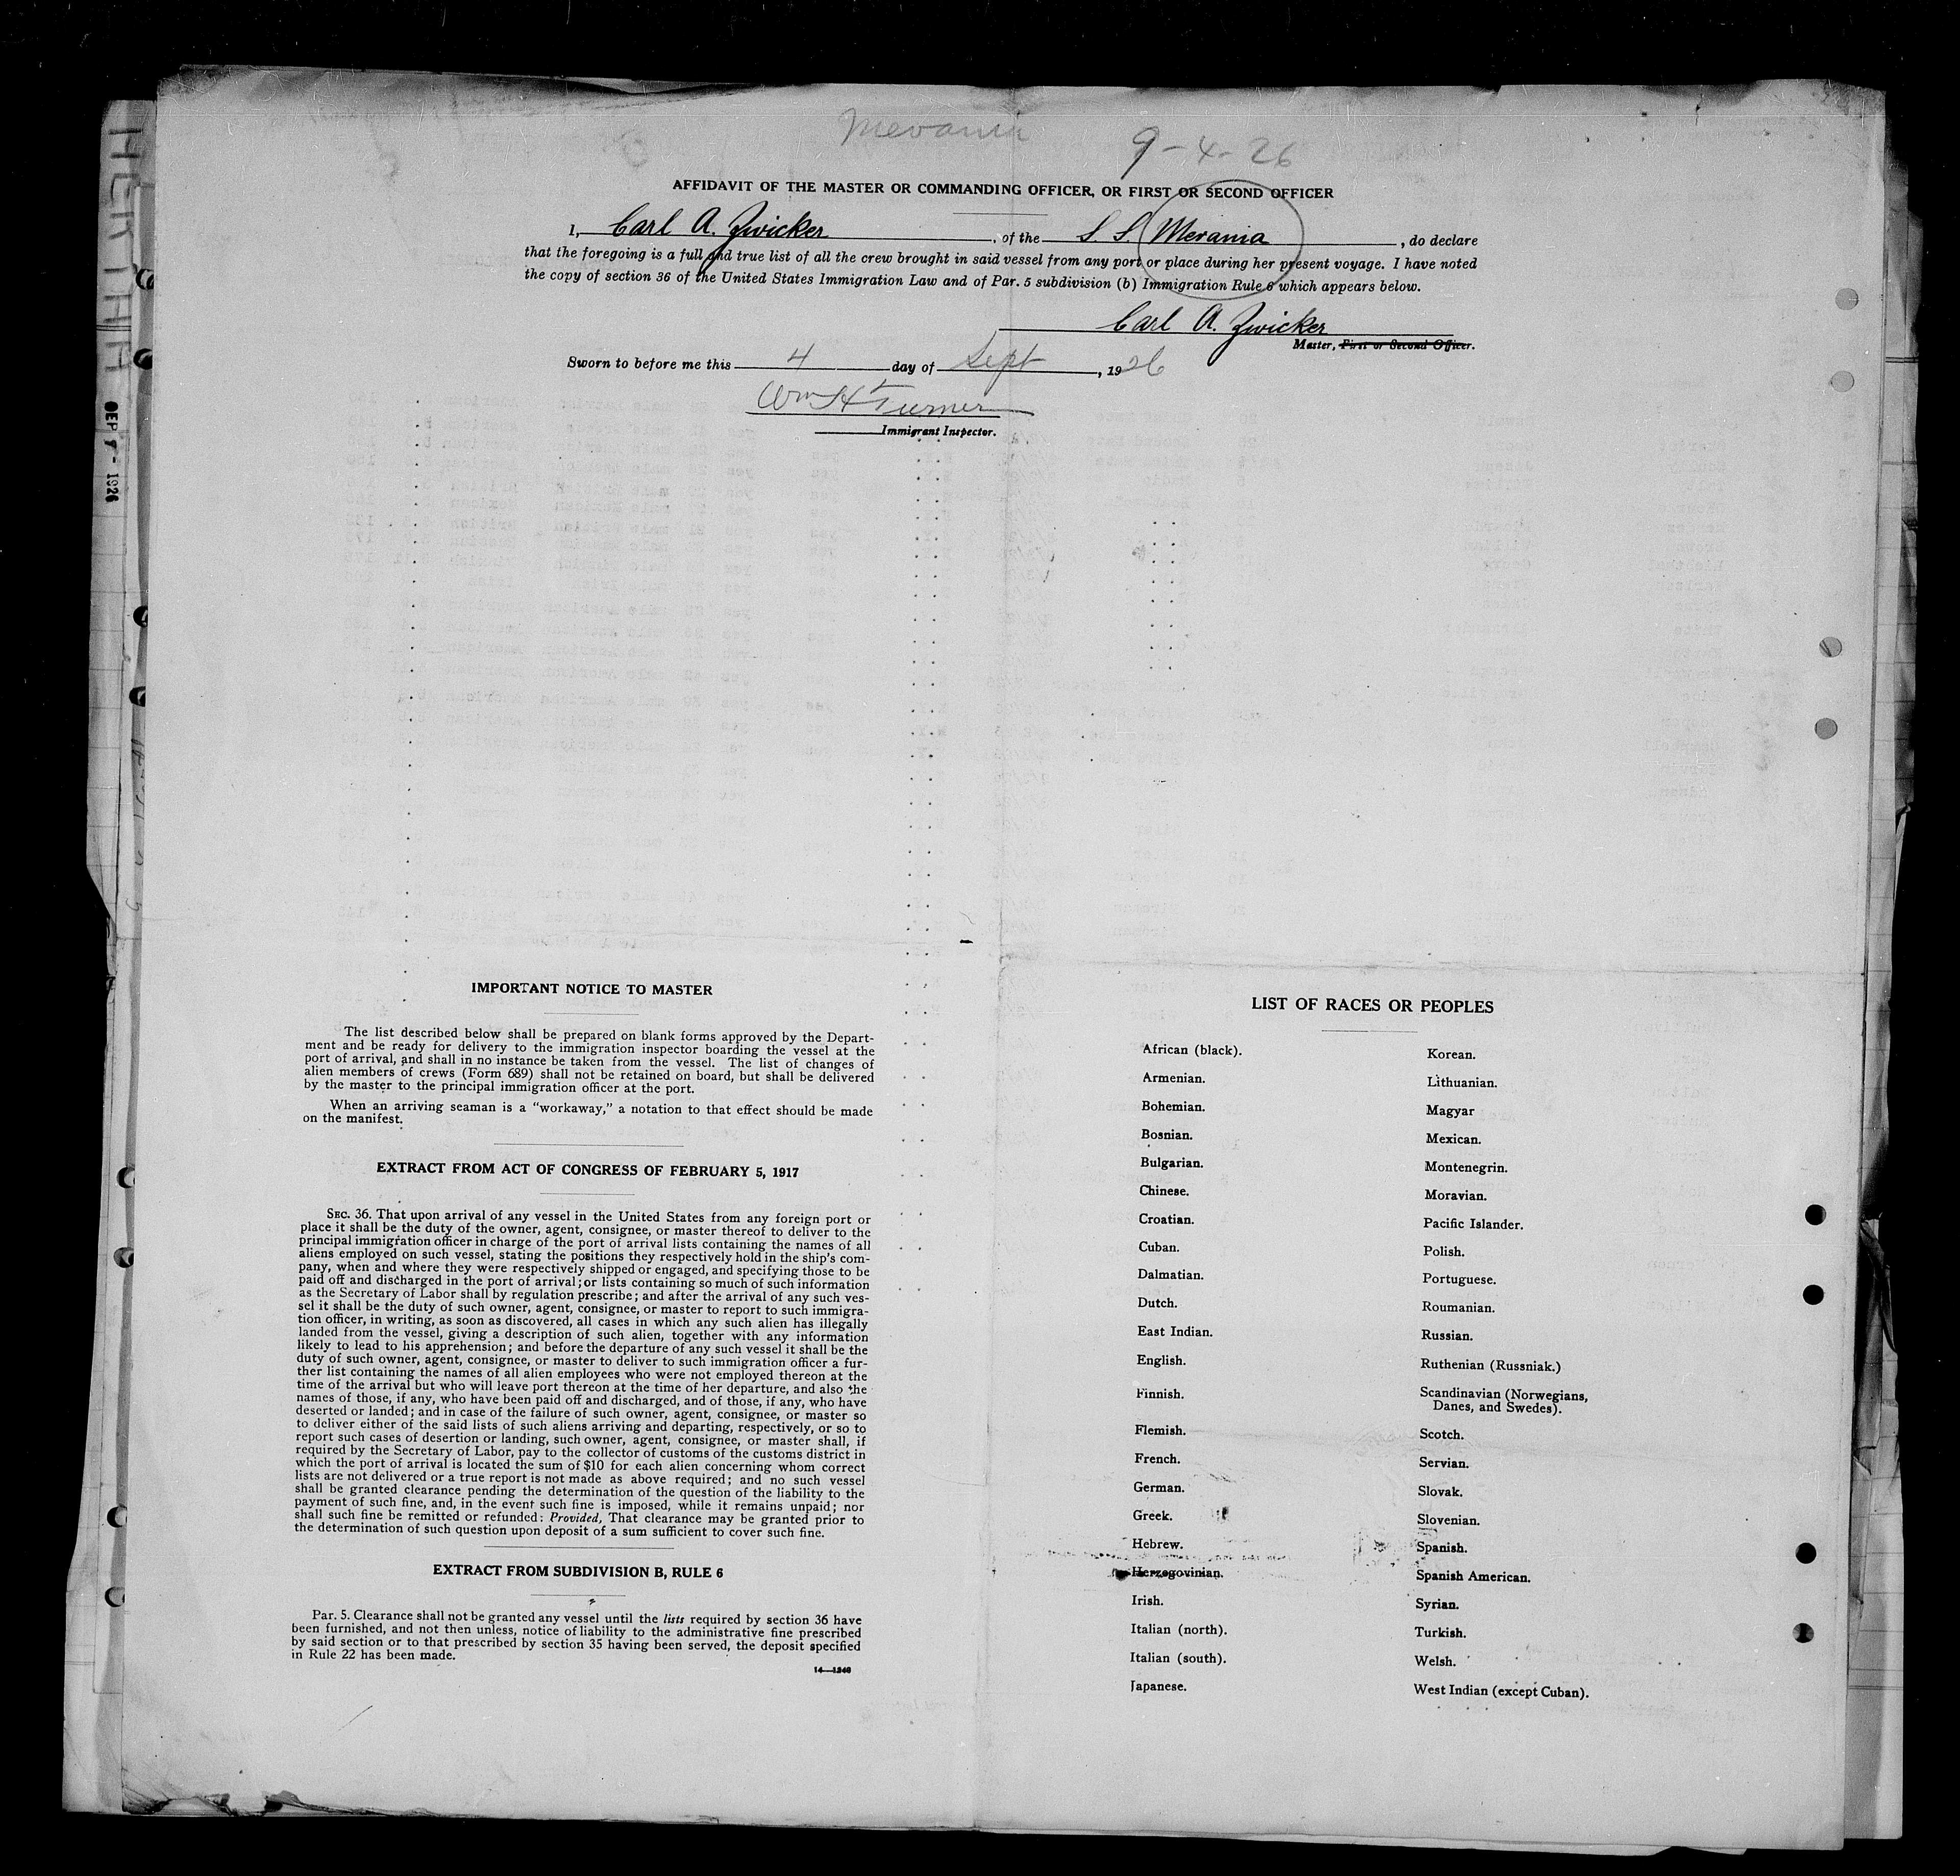 Mevania
9-4-26
AFFIDAVIT OF THE MASTER OR COMMANDING OFFICER, OR FIRST OR SECOND OFFICER
I, Carl A. Zwicker, of the S. S. Mevania, do declare
that the foregoing is a full and true list of all the crew brought in said vessel from any port or place during her present voyage. I have noted
the copy of section 36 of the United States Immigration Law and of Par. 5 subdivision (b) Immigration Rule 6 which appears below.
Carl A. Zwicker
Master, First or Second Officer.
Sworn to before me this 4 day of Sept, 1926
Wm H Turner
Immigrant Inspector.
IMPORTANT NOTICE TO MASTER
The list described below shall be prepared on blank forms approved by the Depart-
ment and be ready for delivery to the immigration inspector boarding the vessel at the
port of arrival, and shall in no instance be taken from the vessel. The list of changes of
alien members of crews (Form 689) shall not be retained on board, but shall be delivered
by the master to the principal immigration officer at the port.
When an arriving seaman is a "workaway," a notation to that effect should be made
on the manifest.
EXTRACT FROM ACT OF CONGRESS OF FEBRUARY 5, 1917
SEC. 36. That upon arrival of any vessel in the United States from any foreign port or
place it shall be the duty of the owner, agent, consignee, or master thereof to deliver to the
principal immigration officer in charge of the port of arrival lists containing the names of all
aliens employed on such vessel, stating the positions they respectively hold in the ship's com-
pany, when and where they were respectively shipped or engaged, and specifying those to be
paid off and discharged in the port of arrival; or lists containing so much of such information
as the Secretary of Labor shall by regulation prescribe; and after the arrival of any such ves-
sel it shall be the duty of such owner, agent, consignee, or master to report to such immigra-
tion officer, in writing, as soon as discovered, all cases in which any such alien has illegally
landed from the vessel, giving a description of such alien, together with any information
likely to lead to his apprehension; and before the departure of any such vessel it shall be the
duty of such owner, agent, consignee, or master to deliver to such immigration officer a fur-
ther list containing the names of all alien employees who were not employed thereon at the
time of the arrival but who will leave port thereon at the time of her departure, and also the
names of those, if any, who have been paid off and discharged, and of those, if any, who have
deserted or landed; and in case of the failure of such owner, agent, consignee, or master so
to deliver either of the said lists of such aliens arriving and departing, respectively, or so to
report such cases of desertion or landing, such owner, agent, consignee, or master shall, if
required by the Secretary of Labor, pay to the collector of customs of the customs district in
which the port of arrival is located the sum of $10 for each alien concerning whom correct
lists are not delivered or a true report is not made as above required; and no such vessel
shall be granted clearance pending the determination of the question of the liability to the
payment of such fine, and, in the event such fine is imposed, while it remains unpaid; nor
shall such fine be remitted or refunded: Provided, That clearance may be granted prior to
the determination of such question upon deposit of a sum sufficient to cover such fine.
EXTRACT FROM SUBDIVISION B, RULE 6
Par. 5. Clearance shall not be granted any vessel until the lists required by section 36 have
been furnished, and not then unless, notice of liability to the administrative fine prescribed
by said section or to that prescribed by section 35 having been served, the deposit specified
in Rule 22 has been made.
14—1240
LIST OF RACES OR PEOPLES
African (black).
Armenian.
Bohemian.
Bosnian.
Bulgarian.
Chinese.
Croatian.
Cuban.
Dalmatian.
Dutch.
East Indian.
English.
Finnish.
Flemish.
French.
German.
Greek.
Hebrew.
Herzegovinian.
Irish.
Italian (north).
Italian (south).
Japanese.
Korean.
Lithuanian.
Magyar
Mexican.
Montenegrin.
Moravian.
Pacific Islander.
Polish.
Portuguese.
Roumanian.
Russian.
Ruthenian (Russniak.)
Scandinavian (Norwegians,
Danes, and Swedes).
Scotch.
Servian.
Slovak.
Slovenian.
Spanish.
Spanish American.
Syrian.
Turkish.
Welsh.
West Indian (except Cuban).